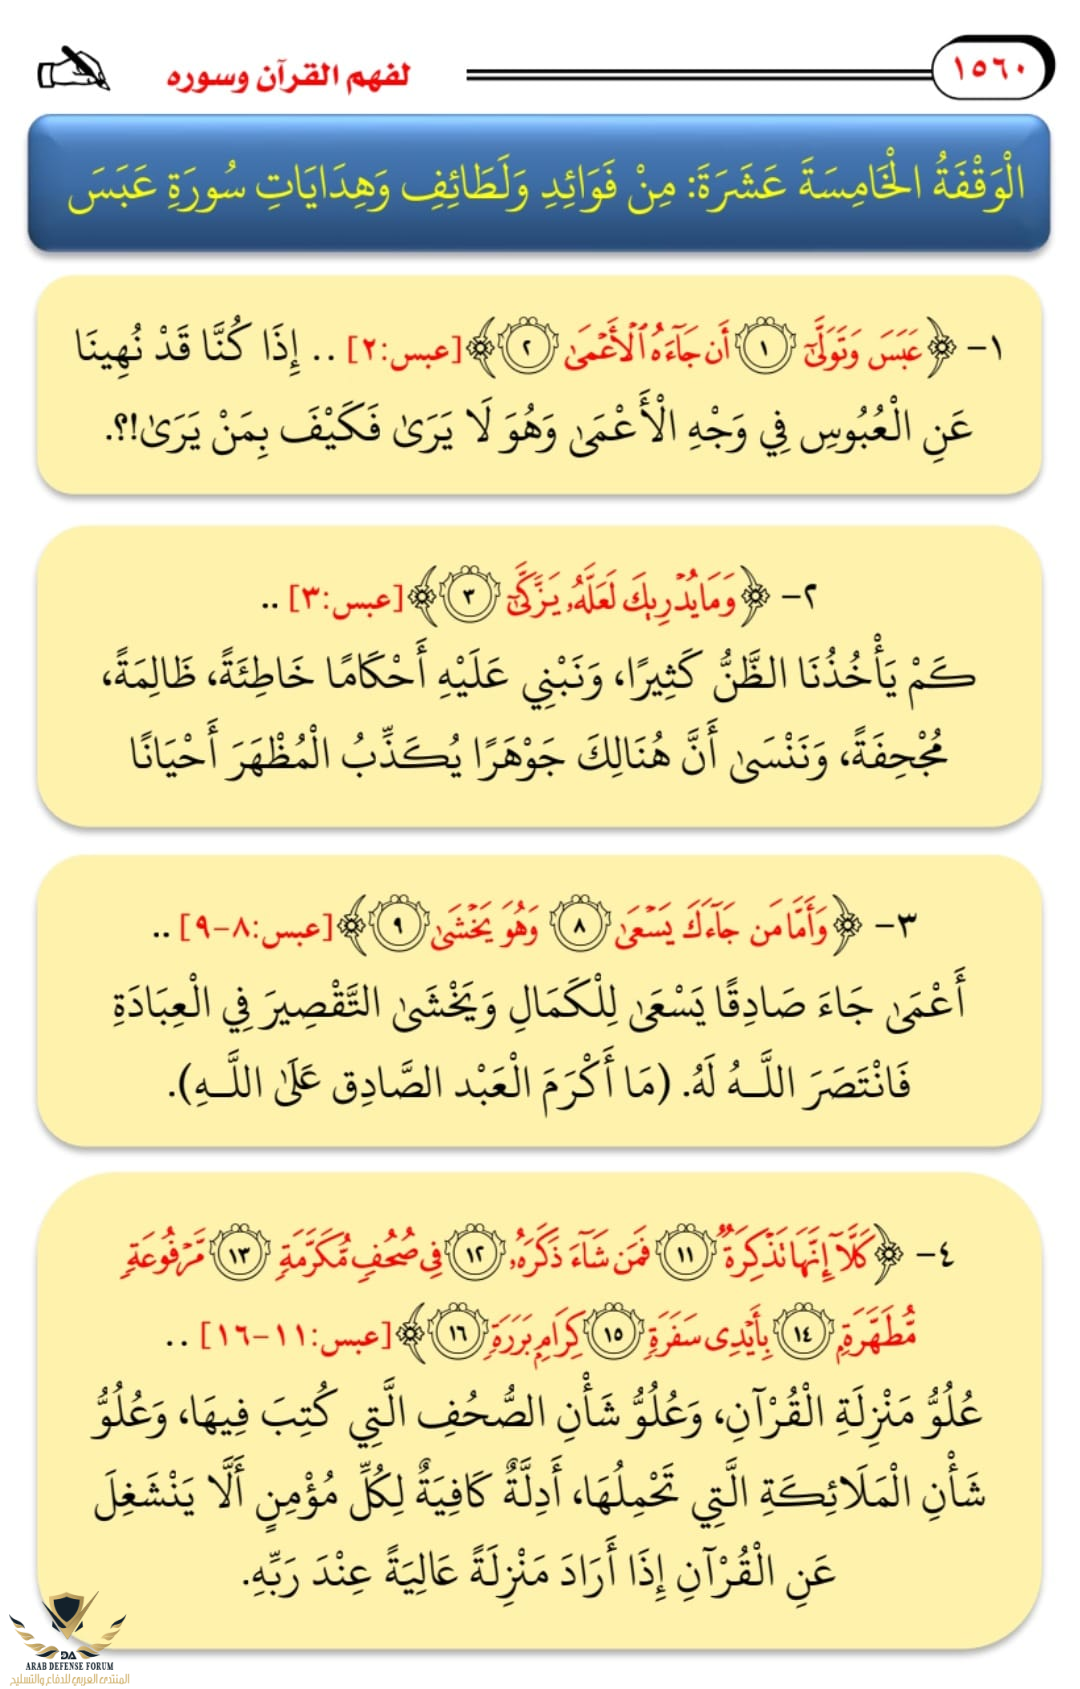 لفهم القرآن وسوره
١٥٦٠
الْوَقْفَةُ الْخَامِسَةَ عَشَرَةَ: مِنْ فَوَائِدِ وَلَطَائِفِ وَهِدَايَاتِ سُورَةِ عَبَسَ
١- ﴿عَبَسَ وَتَوَلَّىٰٓ ١ أَن جَآءَهُ ٱلۡأَعۡمَىٰ ٢﴾ [عبس:٢] .. إِذَا كُنَّا قَدْ نُهِينَا
عَنِ الْعُبُوسِ فِي وَجْهِ الْأَعْمَىٰ وَهُوَ لَا يَرَىٰ فَكَيْفَ بِمَنْ يَرَىٰ!؟.
٢- ﴿وَمَا يُدۡرِيكَ لَعَلَّهُۥ يَزَّكَّىٰٓ ٣﴾ [عبس:٣] ..
كَمْ يَأْخُذُنَا الظَّنُّ كَثِيرًا، وَنَبْنِي عَلَيْهِ أَحْكَامًا خَاطِئَةً، ظَالِمَةً،
مُجْحِفَةً، وَنَنْسَىٰ أَنَّ هُنَالِكَ جَوْهَرًا يُكَذِّبُ الْمُظْهَرَ أَحْيَانًا
٣- ﴿وَأَمَّا مَن جَآءَكَ يَسۡعَىٰ ٨ وَهُوَ يَخۡشَىٰ ٩﴾ [عبس:٨-٩] ..
أَعْمَىٰ جَاءَ صَادِقًا يَسْعَىٰ لِلْكَمَالِ وَيَخْشَىٰ التَّقْصِيرَ فِي الْعِبَادَةِ
فَانْتَصَرَ اللَّـهُ لَهُ. (مَا أَكْرَمَ الْعَبْد الصَّادِق عَلَىٰ اللَّـهِ).
٤- ﴿كَلَّآ إِنَّهَا تَذۡكِرَةٞ ١١ فَمَن شَآءَ ذَكَرَهُۥ ١٢ فِي صُحُفٖ مُّكَرَّمَةٖ ١٣ مَّرۡفُوعَةٖ
مُّطَهَّرَةِۭ ١٤ بِأَيۡدِي سَفَرَةٖ ١٥ كِرَامِۭ بَرَرَةٖ ١٦﴾ [عبس:١١-١٦] ..
عُلُوُّ مَنْزِلَةِ الْقُرْآنِ، وَعُلُوُّ شَأْنِ الصُّحُفِ الَّتِي كُتِبَ فِيهَا، وَعُلُوُّ
شَأْنِ الْمَلَائِكَةِ الَّتِي تَحْمِلُهَا، أَدِلَّةٌ كَافِيَةٌ لِكُلِّ مُؤْمِنٍ أَلَّا يَنْشَغِلَ
عَنِ الْقُرْآنِ إِذَا أَرَادَ مَنْزِلَةً عَالِيَةً عِنْدَ رَبِّهِ.
DA
ARAB DEFENSE FORUM
المنتدى العربي للدفاع والتسليح